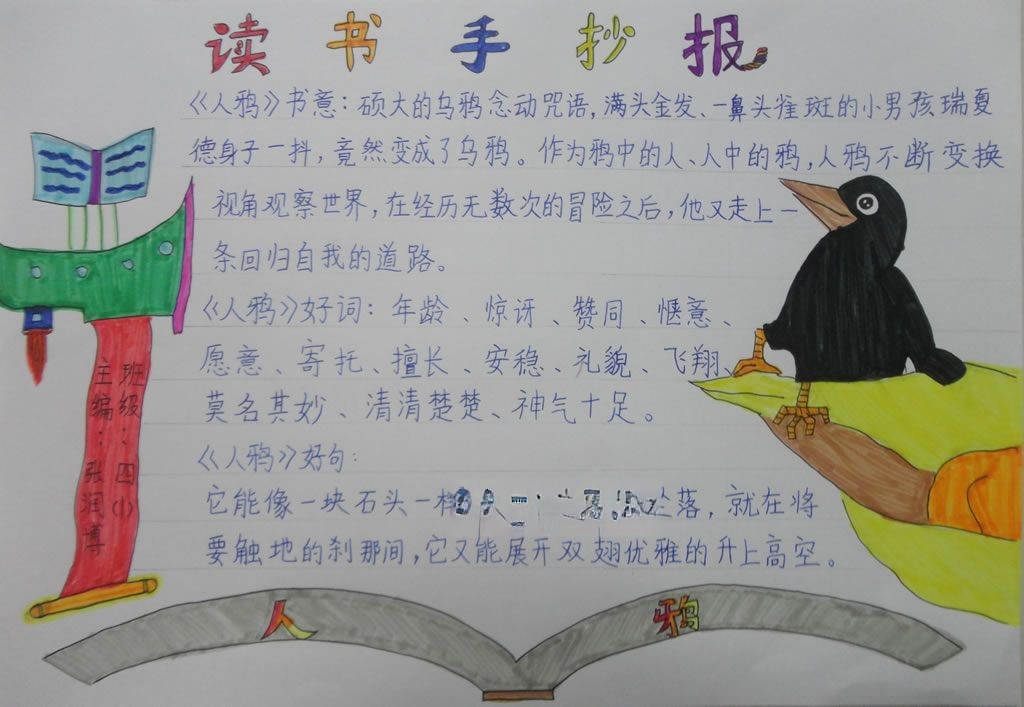 读书手抄报
《人鸦》书意：硕大的乌鸦念动咒语，满头金发、一鼻头雀斑的小男孩瑞夏
德身子一抖，竟然变成了乌鸦。作为鸦中的人、人中的鸦，人鸦不断变换
视角观察世界，在经历无数次的冒险之后，他又走上一
条回归自我的道路。
《人鸦》好词：年龄、惊讶、赞同、惬意、
愿意、寄托、擅长、安稳、礼貌、飞翔、
莫名其妙、清清楚楚、神气十足。
《人鸦》好句：
它能像一块石头一样 坠落，就在将
要触地的刹那间，它又能展开双翅优雅的升上高空。
班级：四(1)
主编：张润博
人鸦